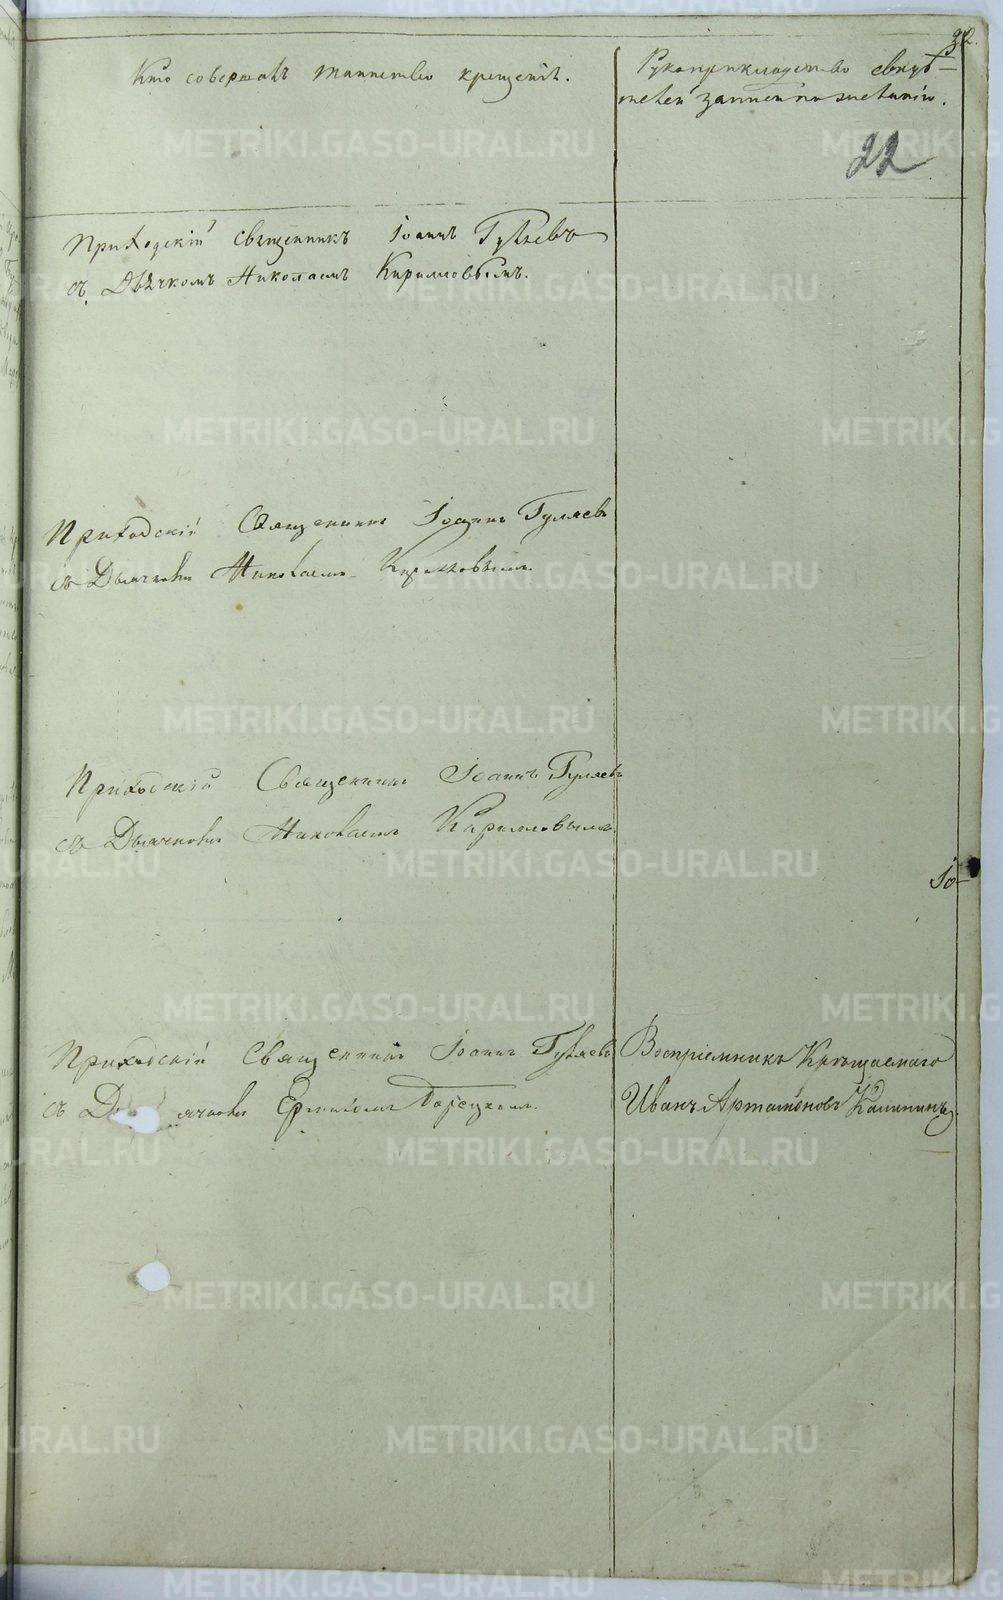 32.
Кто совершалъ таинство крещенія.
Рукоприкладство свидѣ-
телей записи по желанію.
22
Приходскій Священникъ Іоаннъ Гуляевъ
съ Дьячкомъ Николаемъ Кирилловымъ.
Приходскій Священникъ Іоаннъ Гуляевъ
съ Дьячкомъ Николаемъ Кирилловымъ.
Приходскій Священникъ Іоаннъ Гуляевъ
съ Дьячкомъ Николаемъ Кирилловымъ.
Іо-
Приходскій Священникъ Іоаннъ Гуляевъ
съ Дьячкомъ
Воспріемникъ Крещаемаго
Иванъ Артамоновъ Калининъ
METRIKI.GASO-URAL.RU